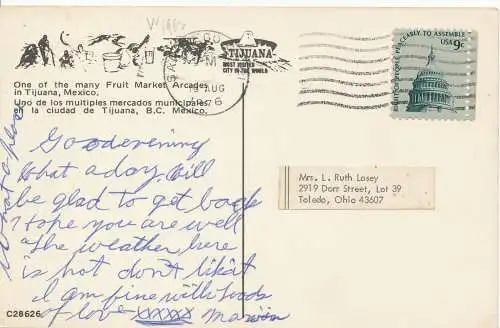 TIJUANA
MOST VISITED
CITY IN THE WORLD
AUG
1976
TO ASSEMBLE
PEACEABLY
USA 9c
One of the many Fruit Market Arcades
in Tijuana, Mexico.
Uno de los multiples mercados municipales
en la ciudad de Tijuana, B.C. Mexico.
Mrs. L. Ruth Losey
2919 Dorr Street, Lot 39
Toledo, Ohio 43607
Good evening
What a day. Will
be glad to get back
Hope you are well
The weather here
is hot don't like it
I am fine with loads
of love xxxxx Marvin
What a place
C28626